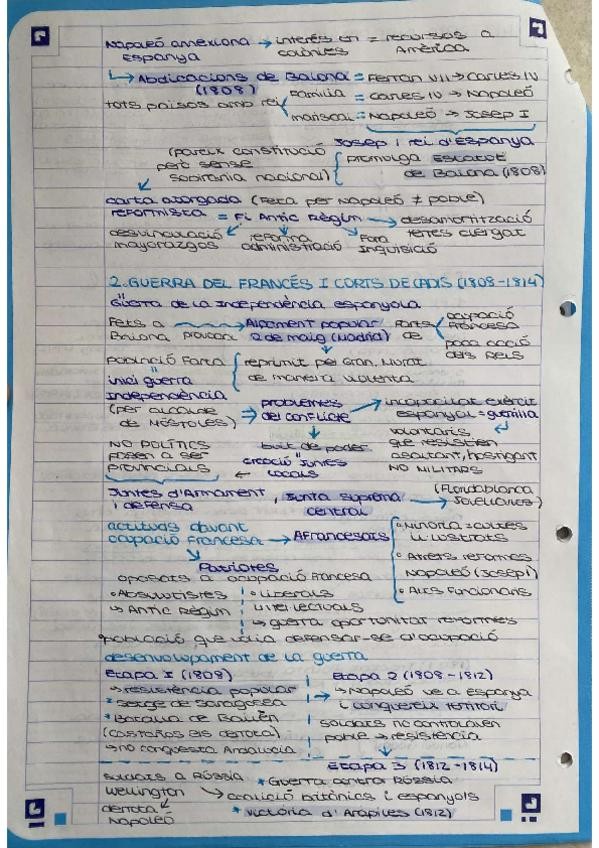 Napoleó annexiona → interés en = recursos a
Espanya colònies Amèrica
↳ Abdicacions de Baiona = Ferran VII → Carles IV
(1808) Família = Carles IV → Napoleó
tots països amb rei mariscal = Napoleó → Josep I
Josep I rei d'Espanya
(pareix constitució promulga Estatut
però sense de Baiona (1808)
sobirania nacional)
carta atorgada (feta per Napoleó ≠ poble)
reformista = Fi Antic Règim → desamortització
desvinculació reforma Fora terres clergat
mayorazgos administració Inquisició
2. GUERRA DEL FRANCÉS I CORTS DE CADIS (1808-1814)
Guerra de la Independència espanyola
Fets a → Alçament popular Farts ocupació
Baiona provoca 2 de maig (Madrid) de francesa
poca acció
dels reis
població farta reprimit pel Gran. Murat
inici guerra de manera violenta
Independència
(per alcalde ⇒ problemes → incapacitat exèrcit
de Móstoles) del conflicte espanyol = guerrilla
NO POLÍTICS buit de poder voluntaris
passen a ser creació Juntes que resistien
provincials ← locals assaltant, hostigant
NO MILITARS
Juntes d'Armament, Junta suprema → (Floridablanca
i defensa central Jovellanos)
actituds davant
ocupació francesa → AFrancesats
• Minoria = cultes
il·lustrats
• Atrets reformes
Napoleó (Josep I)
• Alts Funcionaris
Patriotes
oposats a ocupació Francesa
• Absolutistes • Liberals
→ Antic Règim intel·lectuals
→ guerra oportunitat reformes
• població que volia defensar-se d'ocupació
desenvolupament de la guerra
Etapa 1 (1808) Etapa 2 (1808-1812)
→ resistència popular → Napoleó ve a Espanya
* Setge de Saragossa i conquereix territori
* Batalla de Bailén soldats no controlaven
(Castaños els derrota) poble → resistència
→ no conquesta Andalucía
Etapa 3 (1812-1814)
soldats a Rússia * Guerra contra Rússia
Wellington → coalició britànics i espanyols
derrota * victòria d'Arapiles (1812)
Napoleó